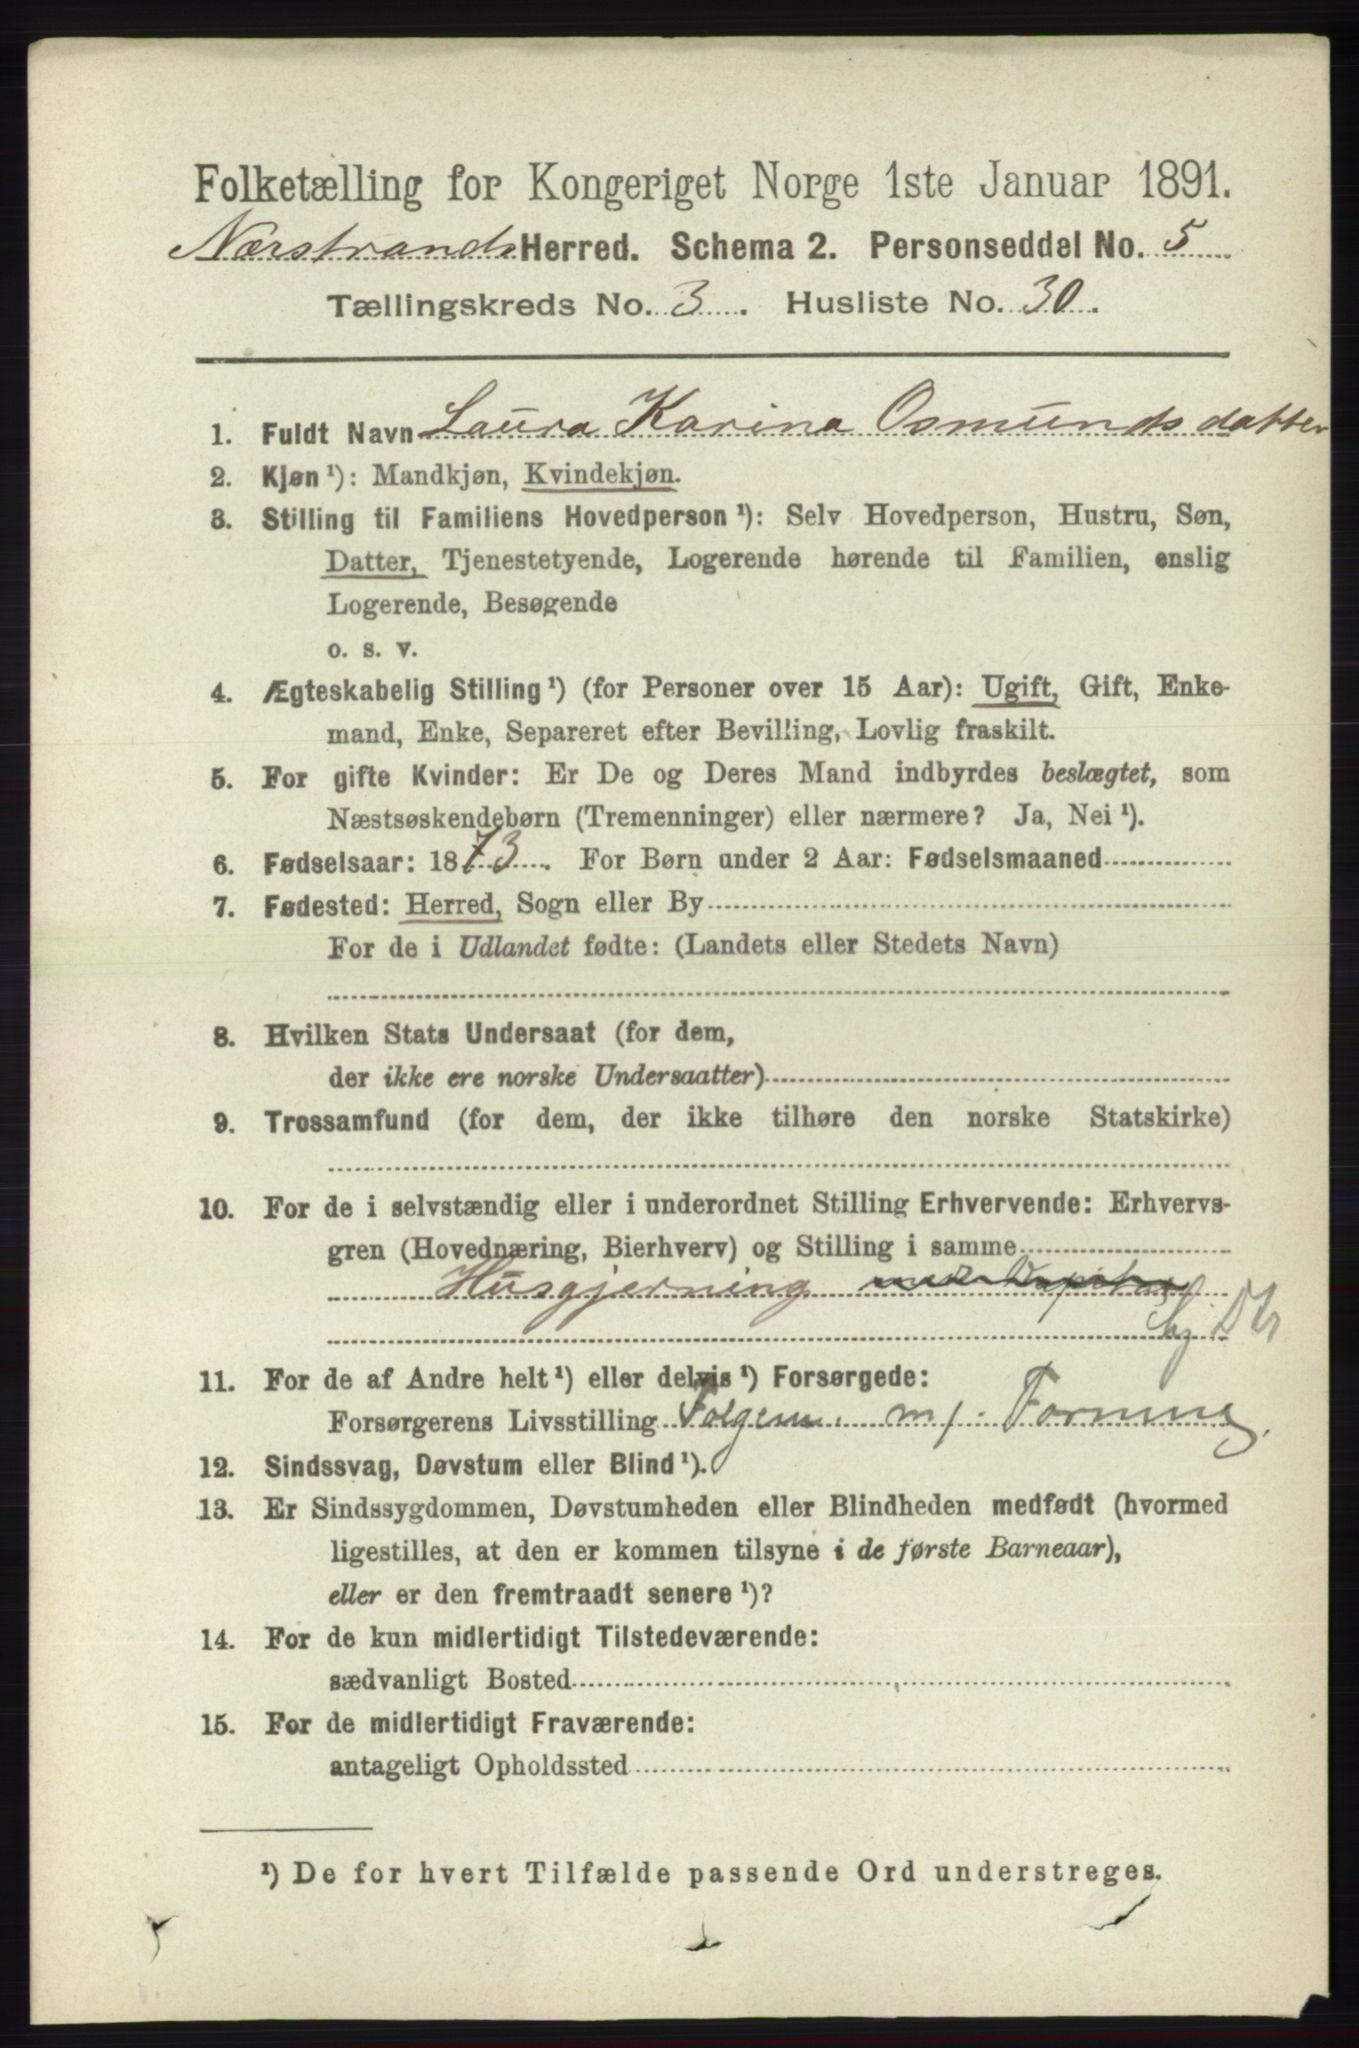 Folketælling for Kongeriget Norge 1ste Januar 1891.
Nærstrands Herred. Schema 2. Personseddel No. 5
Tællingskreds No. 3. Husliste No. 30.
1. Fuldt Navn Laura Karina Osmundsdatter
2. Kjøn ¹): Mandkjøn, Kvindekjøn.
3. Stilling til Familiens Hovedperson ¹): Selv Hovedperson, Hustru, Søn,
Datter, Tjenestetyende, Logerende hørende til Familien, enslig
Logerende, Besøgende
o. s. v.
4. Ægteskabelig Stilling ¹) (for Personer over 15 Aar): Ugift, Gift, Enke-
mand, Enke, Separeret efter Bevilling, Lovlig fraskilt.
5. For gifte Kvinder: Er De og Deres Mand indbyrdes beslægtet, som
Næstsøskendebørn (Tremenninger) eller nærmere? Ja, Nei ¹).
6. Fødselsaar: 1873. For Børn under 2 Aar: Fødselsmaaned
7. Fødested: Herred, Sogn eller By
For de i Udlandet fødte: (Landets eller Stedets Navn)
8. Hvilken Stats Undersaat (for dem,
der ikke ere norske Undersaatter)
9. Trossamfund (for dem, der ikke tilhøre den norske Statskirke)
10. For de i selvstændig eller i underordnet Stilling Erhvervende: Erhvervs-
gren (Hovednæring, Bierhverv) og Stilling i samme
Husgjerning
11. For de af Andre helt ¹) eller delvis ¹) Forsørgede:
Forsørgerens Livsstilling m/.
12. Sindssvag, Døvstum eller Blind ¹).
13. Er Sindssygdommen, Døvstumheden eller Blindheden medfødt (hvormed
ligestilles, at den er kommen tilsyne i de første Barneaar),
eller er den fremtraadt senere ¹)?
14. For de kun midlertidigt Tilstedeværende:
sædvanligt Bosted
15. For de midlertidigt Fraværende:
antageligt Opholdssted
¹) De for hvert Tilfælde passende Ord understreges.